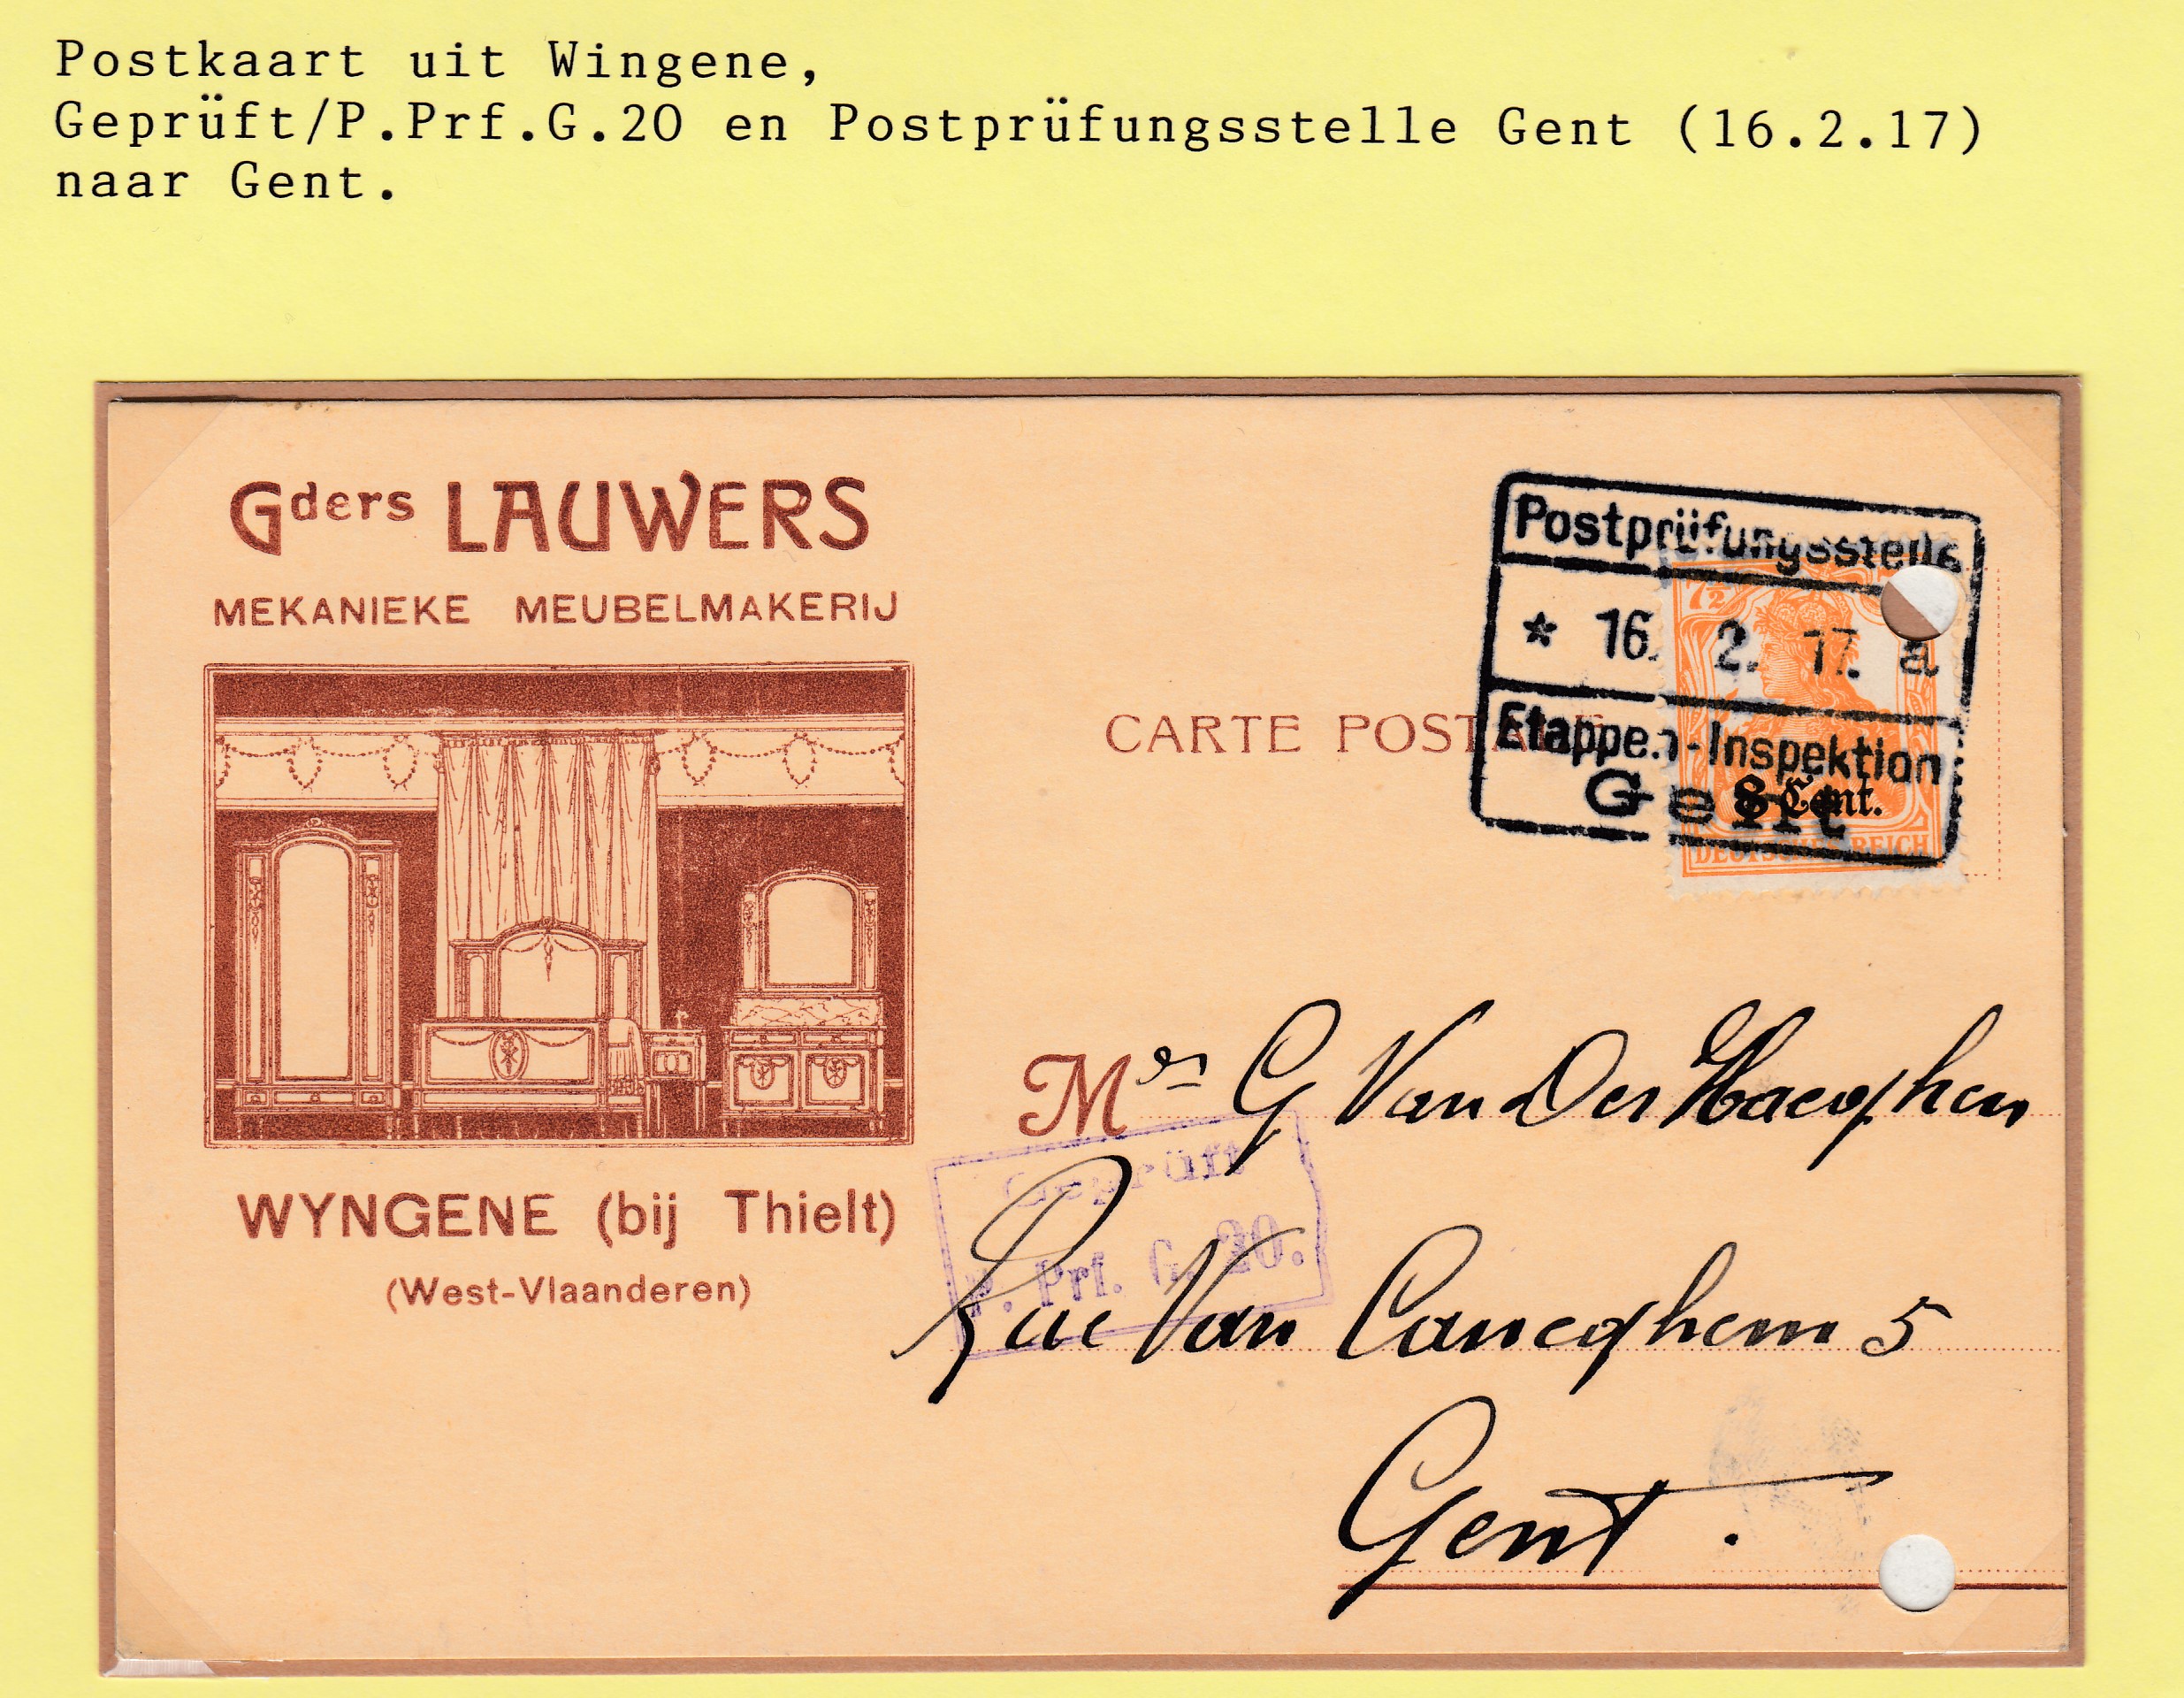 Postkaart uit Wingene,
Geprüft/P.Prf.G.20 en Postprüfungsstelle Gent (16.2.17)
naar Gent.
Gders LAUWERS
MEKANIEKE MEUBELMAKERIJ
WYNGENE (bij Thielt)
(West-Vlaanderen)
CARTE POSTALE
Postprüfungsstelle
* 16. 2. 17. a
Etappen-Inspektion
Gent
7½
8 Cent.
DEUTSCHES REICH
Mr G Van Der Haeghen
Geprüft
P. Prf. G. 20.
Rue Van Caneghem 5
Gent.